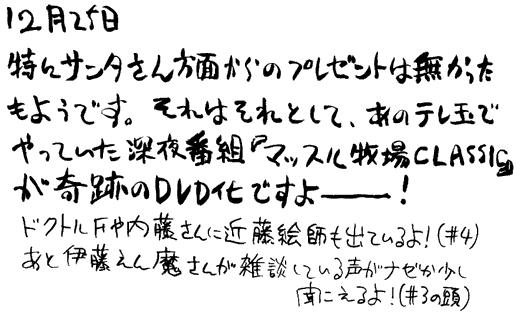 12月25日
特にサンタさん方面からのプレゼントは無かった
もようです。それはそれとして、あのテレ玉で
やっていた深夜番組『マッスル牧場CLASSIC』
が奇跡のDVD化ですよ───！
ドクトルFや内藤さんに近藤絵師も出ているよ！(#4)
あと伊藤えん魔さんが雑談している声がナゼか少し
聞こえるよ！(#3の頭)